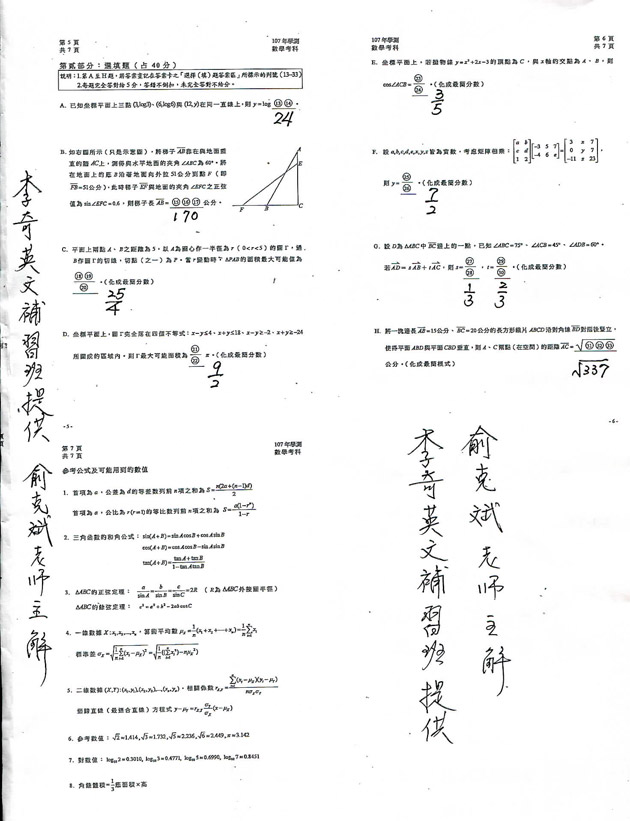 第 5 頁
共 7 頁
107 年學測
數學考科
第貳部分：選填題（占 40 分）
說明：1.第 A 至 H 題，將答案畫記在答案卡之「選擇（填）題答案區」所標示的列號 (13–33)
2.每題完全答對給 5 分，答錯不倒扣，未完全答對不給分。
A. 已知坐標平面上三點 (3,log3)、(6,log6) 與 (12,y) 在同一直線上，則 y=log ⑬⑭。
24
B. 如右圖所示（只是示意圖），將梯子 AB 靠在與地面垂
直的牆 AC 上，測得與水平地面的夾角∠ABC 為 60°。將
在地面上的底 B 沿著地面向外拉 51 公分到點 F（即
FB=51公分），此時梯子 EF 與地面的夾角∠EFC 之正弦
值為 sin∠EFC=0.6，則梯子長 AB= ⑮⑯⑰ 公分。
170
A
E
F B C
C. 平面上兩點 A、B 之距離為 5，以 A 為圓心作一半徑為 r（0<r<5）的圓 Γ，過
B 作圓 Γ 的切線，切點（之一）為 P。當 r 變動時，△PAB 的面積最大可能值為
⑱⑲/⑳。（化成最簡分數）
25/4
D. 坐標平面上，圓 Γ 完全落在四個不等式：x−y≤4、x+y≤18、x−y≥−2、x+y≥−24
所圍成的區域內，則 Γ 最大可能面積為 ㉑/㉒ π。（化成最簡分數）
9/2
- 5 -
第 6 頁
共 7 頁
107 年學測
數學考科
E. 坐標平面上，若拋物線 y=x²+2x−3 的頂點為 C，與 x 軸的交點為 A、B，則
cos∠ACB= ㉓/㉔。（化成最簡分數）
3/5
F. 設 a,b,c,d,e,x,y,z 皆為實數，考慮矩陣相乘：[a b; c d; 1 2][−3 5 7; −4 6 e]=[3 x 7; 0 y 7; −11 z 23]，
則 y= ㉕/㉖。（化成最簡分數）
7/2
G. 設 D 為 △ABC 中 BC 邊上的一點，已知∠ABC=75°、∠ACB=45°、∠ADB=60°。
若 AD=sAB+tAC，則 s= ㉗/㉘、t= ㉙/㉚。（化成最簡分數）
1/3 2/3
H. 將一塊邊長 AB=15公分、BC=20公分的長方形鐵片 ABCD 沿對角線 BD 對摺後豎立，
使得平面 ABD 與平面 CBD 垂直，則 A、C 兩點（在空間）的距離 AC=√㉛㉜㉝
公分。（化成最簡根式）
√337
- 6 -
第 7 頁
共 7 頁
107 年學測
數學考科
參考公式及可能用到的數值
1. 首項為 a，公差為 d 的等差數列前 n 項之和為 S=n(2a+(n−1)d)/2
首項為 a，公比為 r(r≠1) 的等比數列前 n 項之和為 S=a(1−rⁿ)/1−r
2. 三角函數的和角公式：sin(A+B)=sinAcosB+cosAsinB
cos(A+B)=cosAcosB−sinAsinB
tan(A+B)=tanA+tanB/1−tanAtanB
3. △ABC 的正弦定理：a/sinA=b/sinB=c/sinC=2R （R 為 △ABC 外接圓半徑）
△ABC 的餘弦定理：c²=a²+b²−2abcosC
4. 一維數據 X:x₁,x₂,...,xₙ，算術平均數 μₓ=1/n(x₁+x₂+⋯+xₙ)=1/n Σxᵢ
標準差 σₓ=√1/n Σ(xᵢ−μₓ)²=√1/n((Σxᵢ²)−nμₓ²)
5. 二維數據 (X,Y):(x₁,y₁),(x₂,y₂),...,(xₙ,yₙ)，相關係數 r_X,Y=Σ(xᵢ−μ_X)(yᵢ−μ_Y)/nσ_Xσ_Y
迴歸直線（最適合直線）方程式 y−μ_Y=r_X,Y σ_Y/σ_X (x−μ_X)
6. 參考數值：√2≈1.414, √3≈1.732, √5≈2.236, √6≈2.449, π≈3.142
7. 對數值：log₁₀2≈0.3010, log₁₀3≈0.4771, log₁₀5≈0.6990, log₁₀7≈0.8451
8. 角錐體積=1/3底面積×高
李奇英文補習班提供 俞克斌老師主解
俞克斌老師主解
李奇英文補習班提供